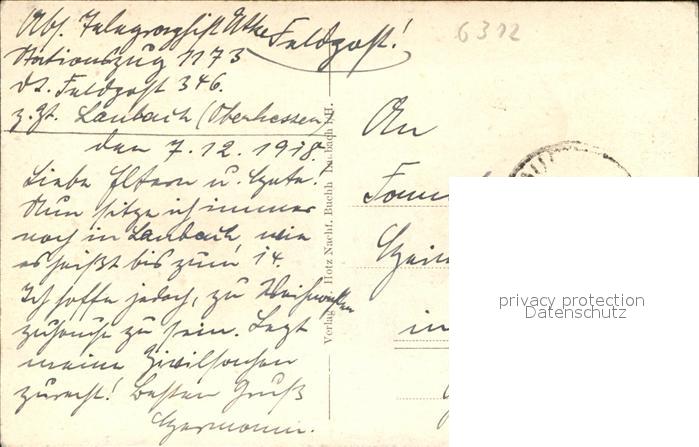 Abs. Telegraphist Utke
Feldpost!
6312
Stationszug 1173
Dt. Feldpost 346.
z. Zt. Laubach (Oberhessen)
den 7.12.1918.
Liebe Eltern u. !
Nun sitze ich immer
noch in Laubach, wie
es heißt bis zum 14.
Ich hoffe jedoch, zu Weihnachten
zuhause zu sein. Legt
meine Zivilsachen
zurecht! Besten Gruß
Hermann.
Verlag Hotz Nachf. Buchh. Laubach i. H.
An
in
privacy protection
Datenschutz